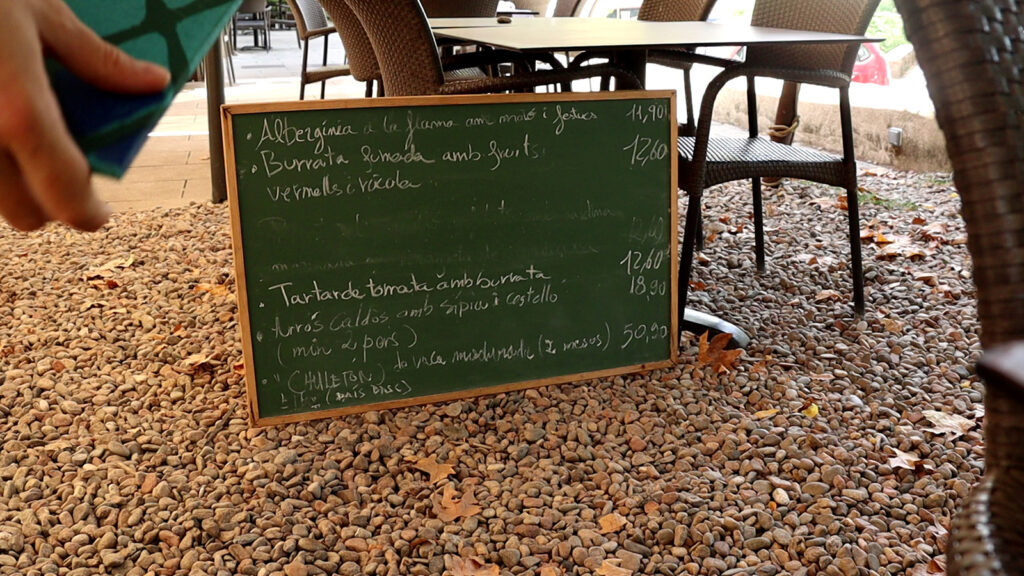 · Albergínia a la flama amb mató i festucs 11,90
· Burrata fumada amb fruits 12,60
vermells i rúcula
· Tartar de tomata amb burrata 12,60
· Arrós caldós amb sípia i costelló 18,90
(min 2 pers)
(CHULETÓN) de vaca madurada (2 mesos) 50,90
(PAÍS BASC)